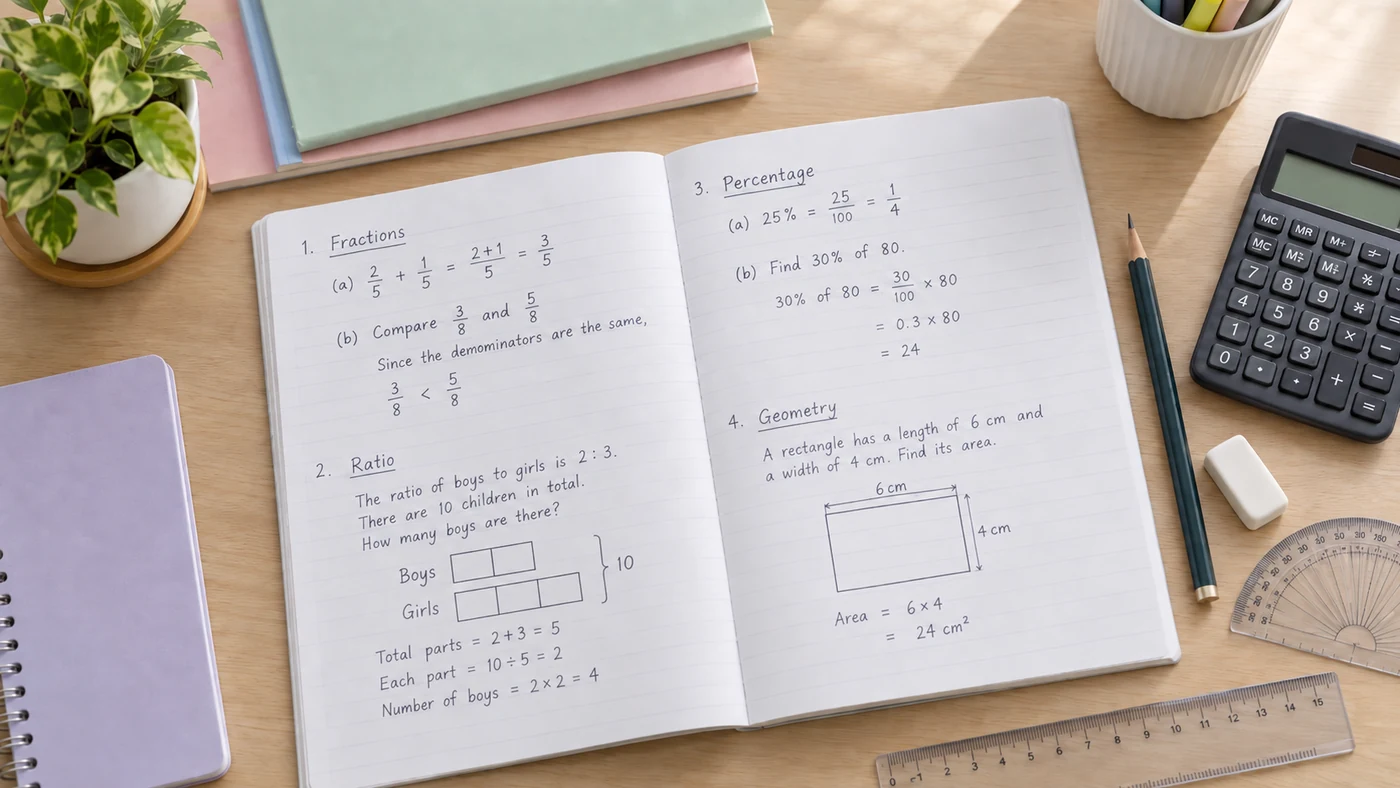 1. Fractions
(a) 2/5 + 1/5 = 2+1/5 = 3/5
(b) Compare 3/8 and 5/8
Since the demominators are the same,
3/8 < 5/8
2. Ratio
The ratio of boys to girls is 2 : 3.
There are 10 children in total.
How many boys are there?
Boys
Girls
10
Total parts = 2 + 3 = 5
Each part = 10 ÷ 5 = 2
Number of boys = 2 × 2 = 4
3. Percentage
(a) 25% = 25/100 = 1/4
(b) Find 30% of 80.
30% of 80 = 30/100 × 80
= 0.3 × 80
= 24
4. Geometry
A rectangle has a length of 6 cm and
a width of 4 cm. Find its area.
6 cm
4 cm
Area = 6 × 4
= 24 cm²
MC MR M+ ÷
MC
7 8 9 *
4 5 6 × −
1 2 3 + −
0 =
0 1 2 3 4 5 6 7 8 9 10 11 12 13 14 15